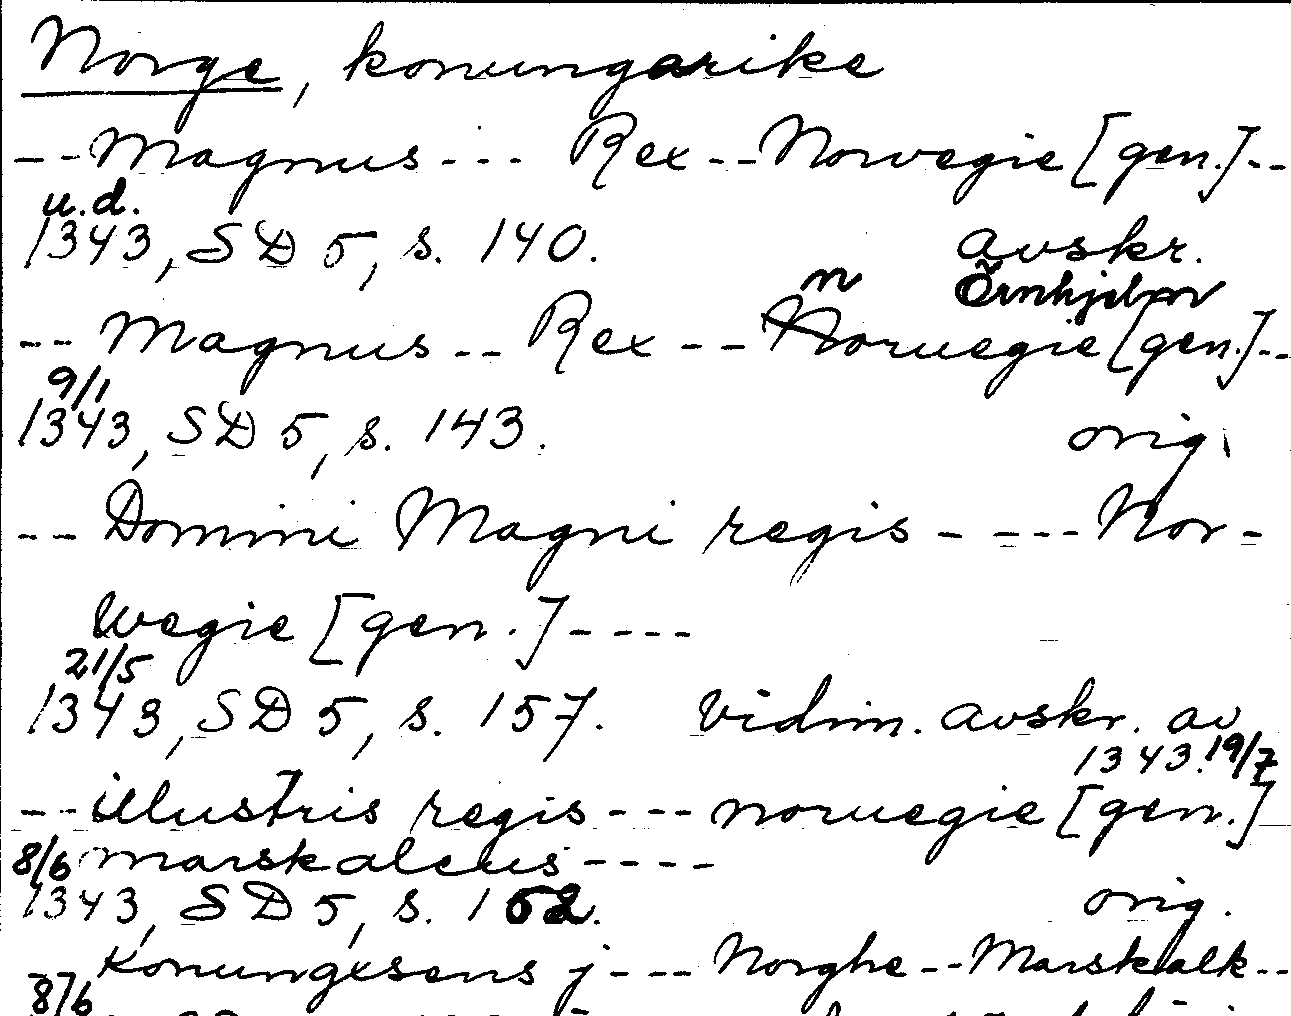 Norge, konungarike
--Magnus--- Rex--Norvegie [gen.]--
u.d.
1343, SD 5, s. 140. avskr.
n Örnhjelm
-- Magnus -- Rex -- Noruegie [gen.]--
9/1
1343, SD 5, s. 143. orig.
-- Domini Magni regis ----Nor-
wegie [gen.]----
21/5
1343, SD 5, s. 157. vidim. avskr. av
1343.19/7
--illustris regis---noruegie [gen.]
8/6 marskalcus----
1343, SD 5, s. 162. orig.
Konungxsens j---Norghe--Marskalk--
8/6